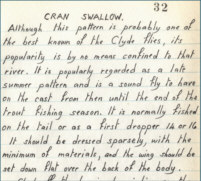 32
CRAN SWALLOW.
Although this pattern is probably one of
the best known of the Clyde flies, its
popularity is by no means confined to that
river. It is popularly regarded as a late
summer pattern and is a sound fly to have
on the cast from then until the end of the
trout fishing season. It is normally fished
on the tail or as a first dropper 14 or 16
It should be dressed sparsely, with the
minimum of materials, and the wing should be
set down flat over the back of the body.